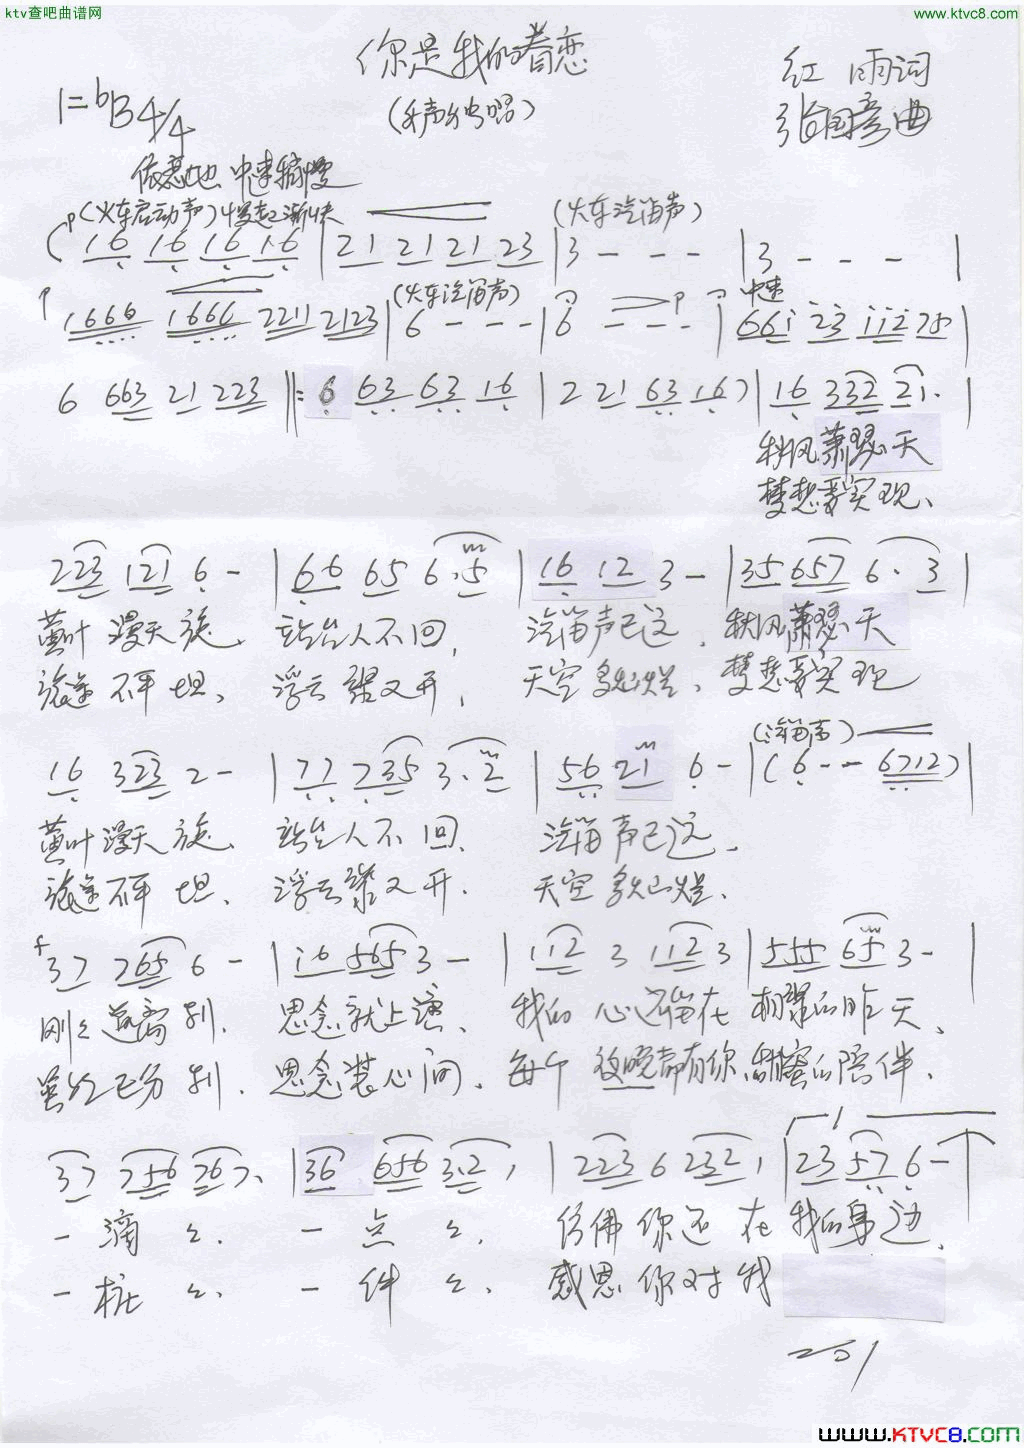 ktv查吧曲谱网
www.ktvc8.com
你是我的眷恋
红雨词
1=bB 4/4
张国彦曲
依恋地 中速稍慢
p (火车启动声) 慢起渐快
(火车汽笛声)
( 16 16 16 16 | 21 21 21 23 | 3 - - - | 3 - - - |
(火车汽笛声)
中速
1666 1666 2211 2123 | 6 - - - | 6 - - - | 661 23 112 75 |
6 663 21 223 ‖: 6 63 63 16 | 2 21 63 16 ) | 16 332 21. |
秋风萧瑟天
梦想要实现、
223 121 6 - | 66 65 6.5 | 16 12 3 - | 35 657 6. 3 |
黄叶漫天旋、 站台人不回, 汽笛声已远、 秋风萧瑟天
旅途不平坦、 浮云聚又开, 天空多灿烂、 梦想要实现
(汽笛声)
16 323 2 - | 77 735 3.2 | 56 21 6 - | ( 6 - - 6712 ) |
黄叶漫天旋、 站台人不回、 汽笛声已远、
旅途不平坦、 浮云聚又开、 天空多灿烂、
f
37 765 6 - | i6 565 3 - | 112 3 112 3 | 555 65 3 - |
刚刚道离别、 思念就上演、 我的心还留在相聚的昨天、
虽然已分别、 思念装心间、 每个夜晚都有你甜蜜的陪伴、
37 756 767、 | 36 656 3.2、 | 223 6 232、 | 23 57 6 - |
一滴々、 一点々、 仿佛你还在我的身边、
一桩々、 一件々、 感恩你对我
www.KTVC8.com